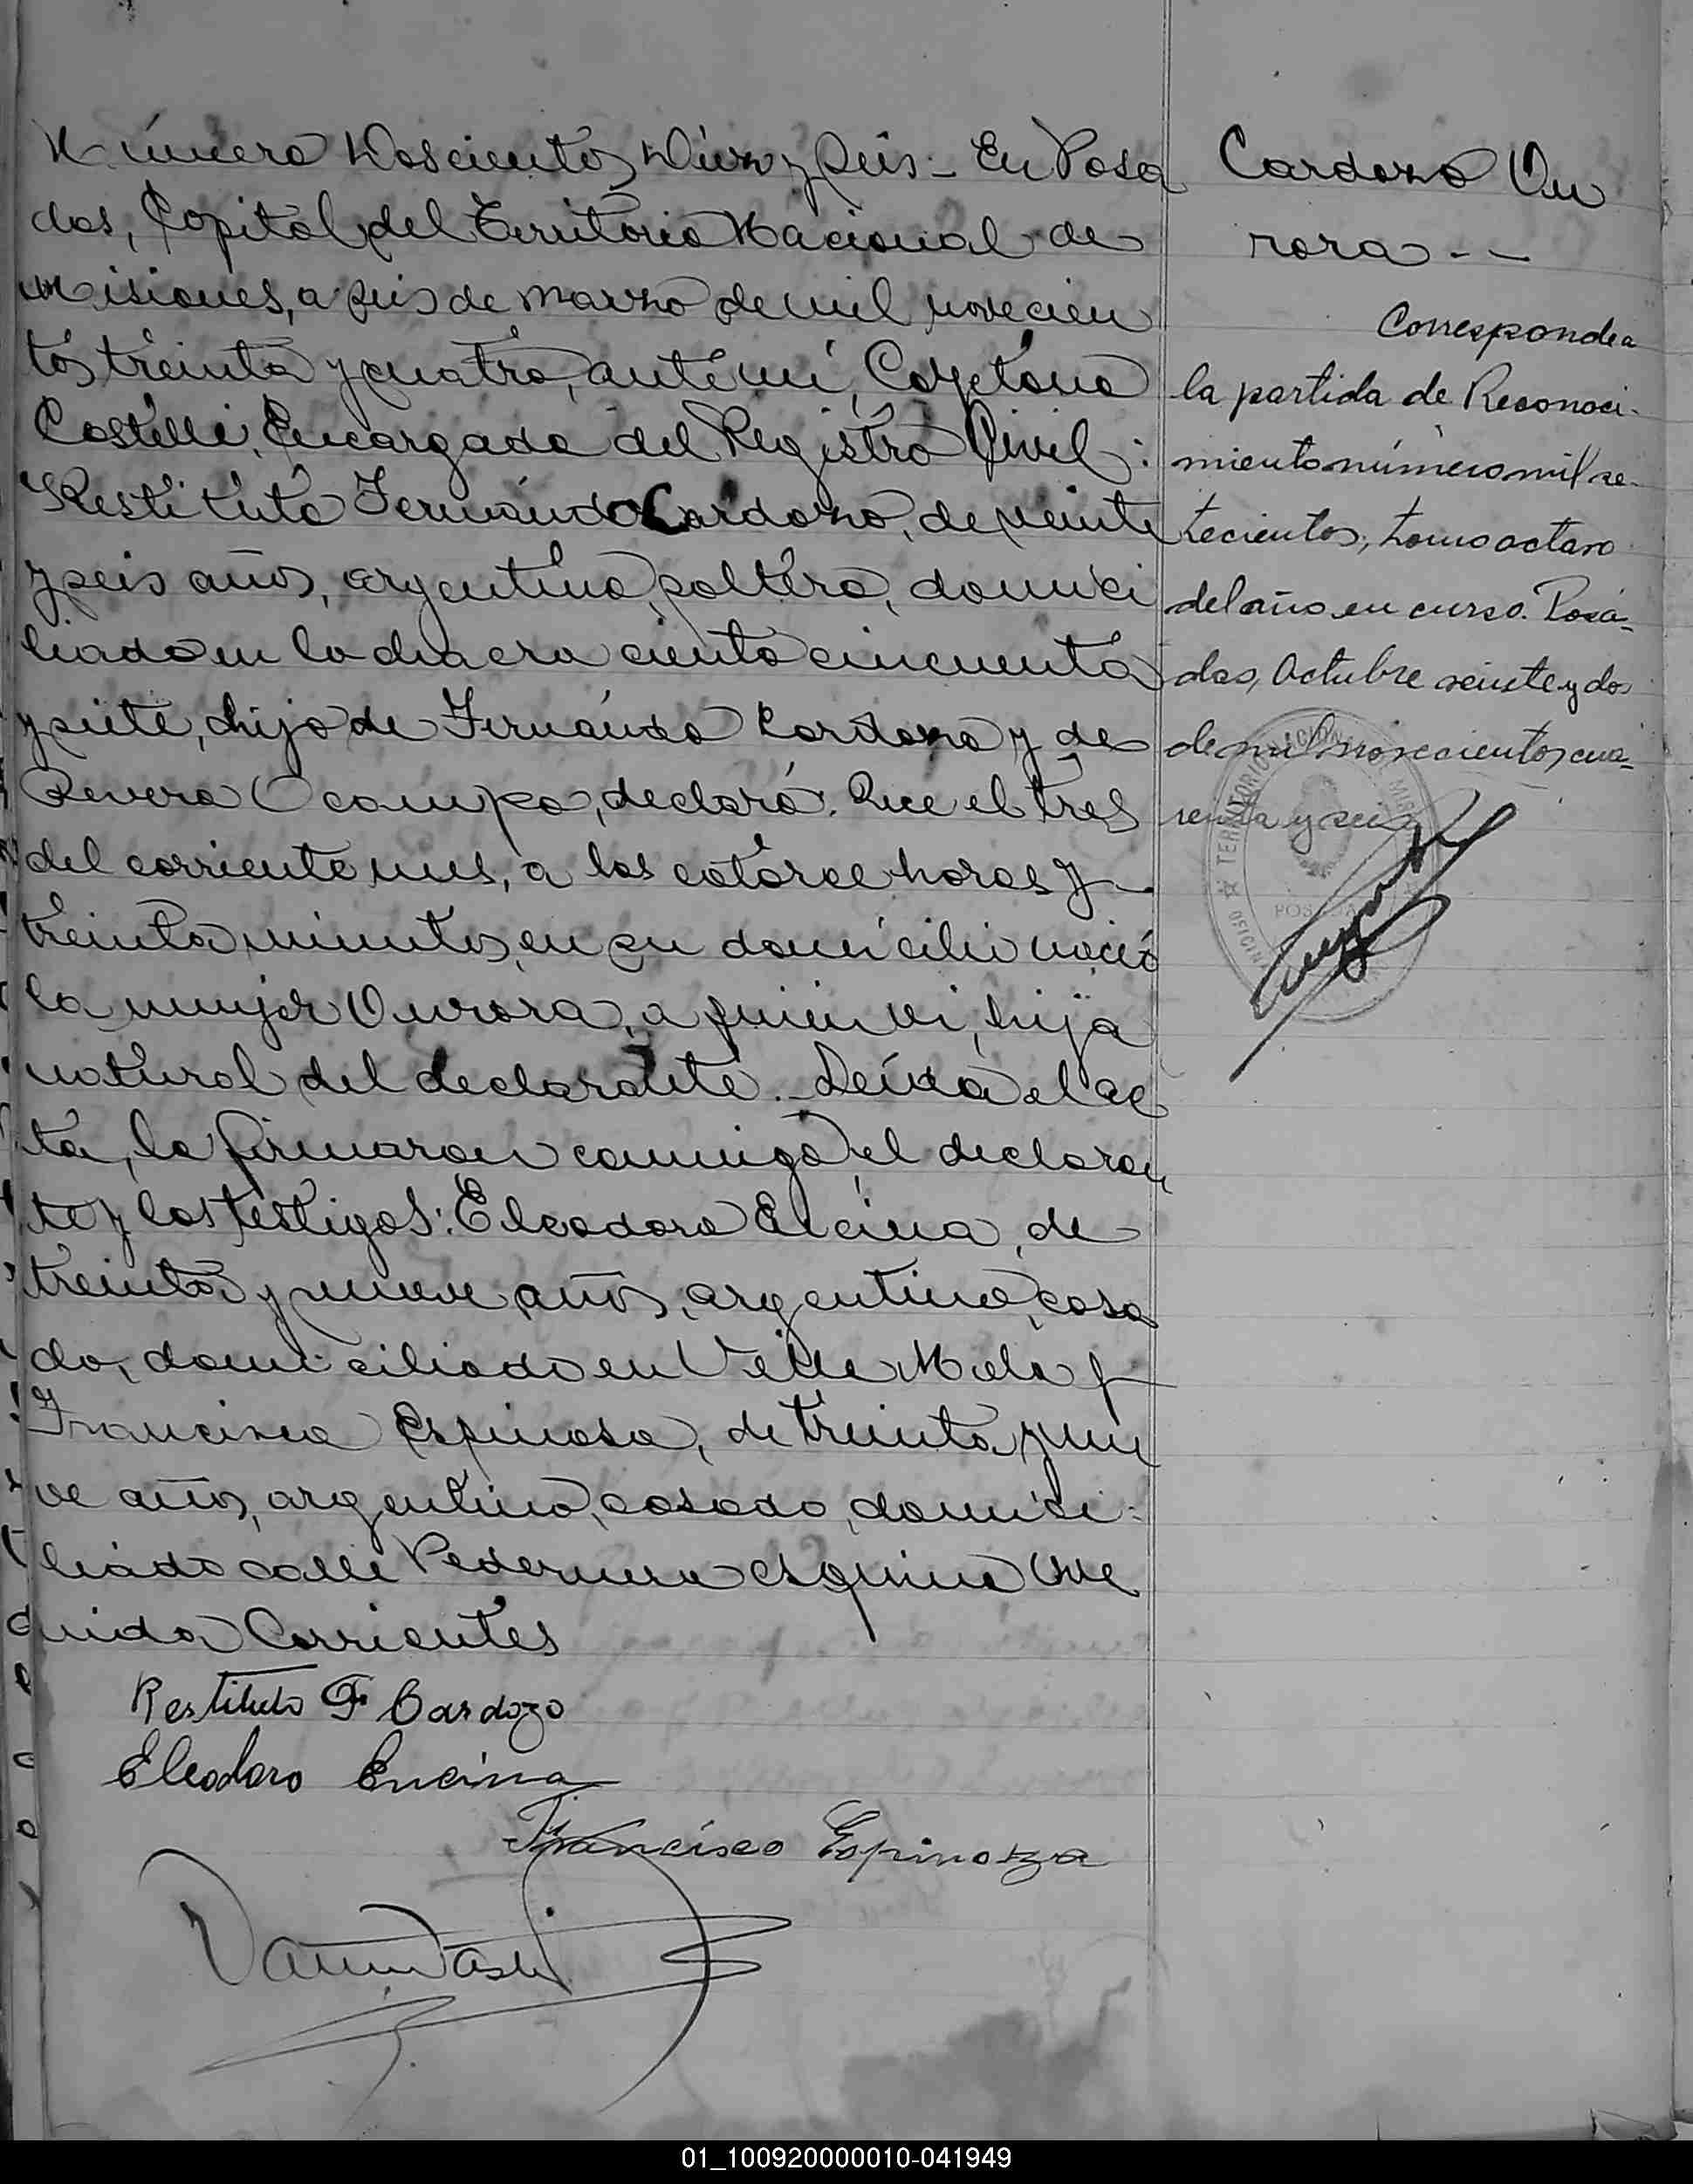 Número Doscientos Diez y seis - En Posa
das, Capital del Territorio Nacional de
Misiones, a seis de marzo de mil novecien
tos treinta y cuatro, ante mí, Cayetano
Castelli, Encargado del Registro Civil:
Restituto Fernando Cardozo, de veinte
y seis años, argentino, soltero, domici
liado en la chacra ciento cincuenta
y siete, hijo de Fernando Cardozo y de
Ocampo, declaró: Que el tres
del corriente mes, a las catorce horas y
treinta minutos, en su domicilio nació
la mujer Aurora, a quien vi, hija
natural del declarante. Leída el ac
ta, la firmaron conmigo el declaran
te y los testigos: Eleodoro Encina, de
treinta y nueve años, argentino, casa
do, domiciliado en Villa y
Francisco Espinosa, de treinta y nue
ve años, argentino, casado, domici
liado calle Pedernera esquina Ave
nida Corrientes
Restituto F. Cardozo
Eleodoro Encina
Francisco Espinoza
Cardozo Au
rora - -
Corresponde a
la partida de Reconoci-
miento número mil se-
tecientos, tomo octavo
del año en curso. Posa-
das, Octubre veinte y dos
de mil novecientos cua-
renta y seis
TERRITORIO NACIONAL
POSADAS
01_100920000010-041949